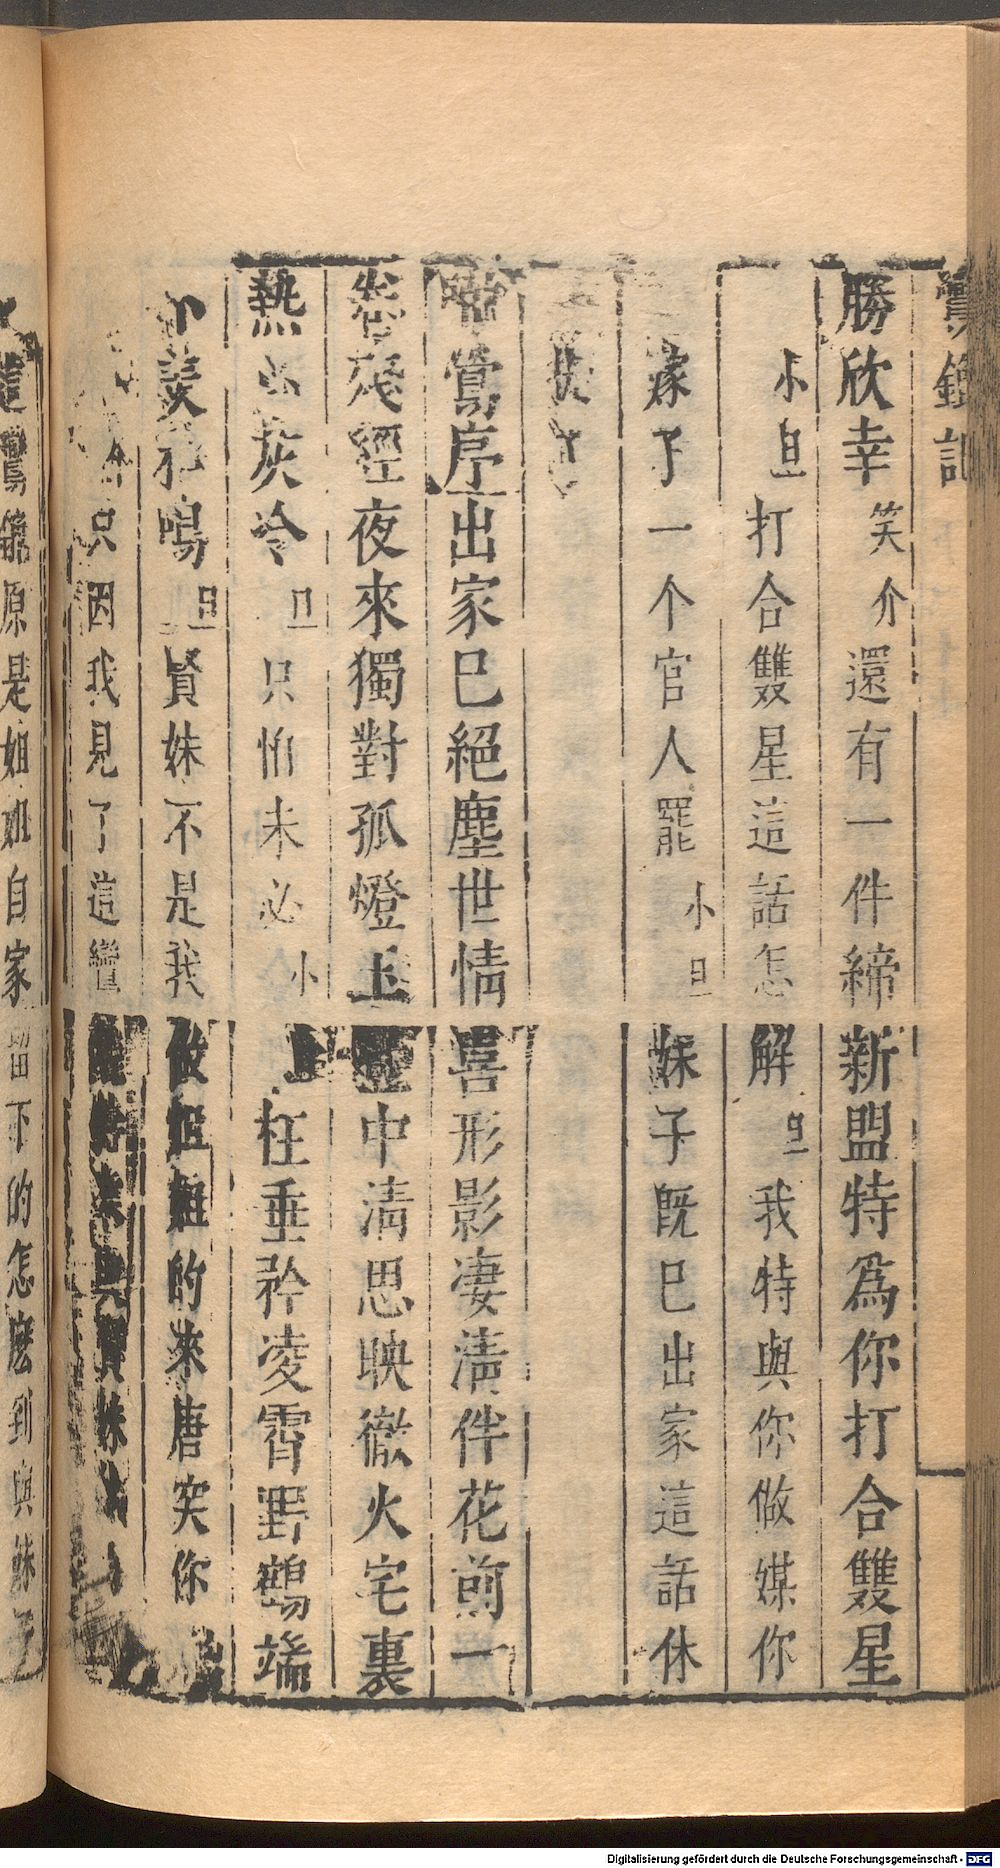 鸞鎞記
勝欣幸笑介還有一件締新盟特爲你打合雙星
小旦打合雙星這話怎解旦我特與你做媒你
嫁了一个官人罷小旦妹子既已出家這話休
啼鶯序出家已絕塵世情喜形影凄清伴花前一
卷殘經夜來獨對孤燈上 中清思映徹火宅裏
熱 灰冷旦只怕未必小 枉垂矜凌霄野鶴端
不羨 鳴旦賢妹不是我做姐姐的來唐突你
只因我見了這鸞 與賢妹
這鸞鎞原是姐姐自家留下的怎麽到與妹子
Digitalisierung gefördert durch die Deutsche Forschungsgemeinschaft - DFG